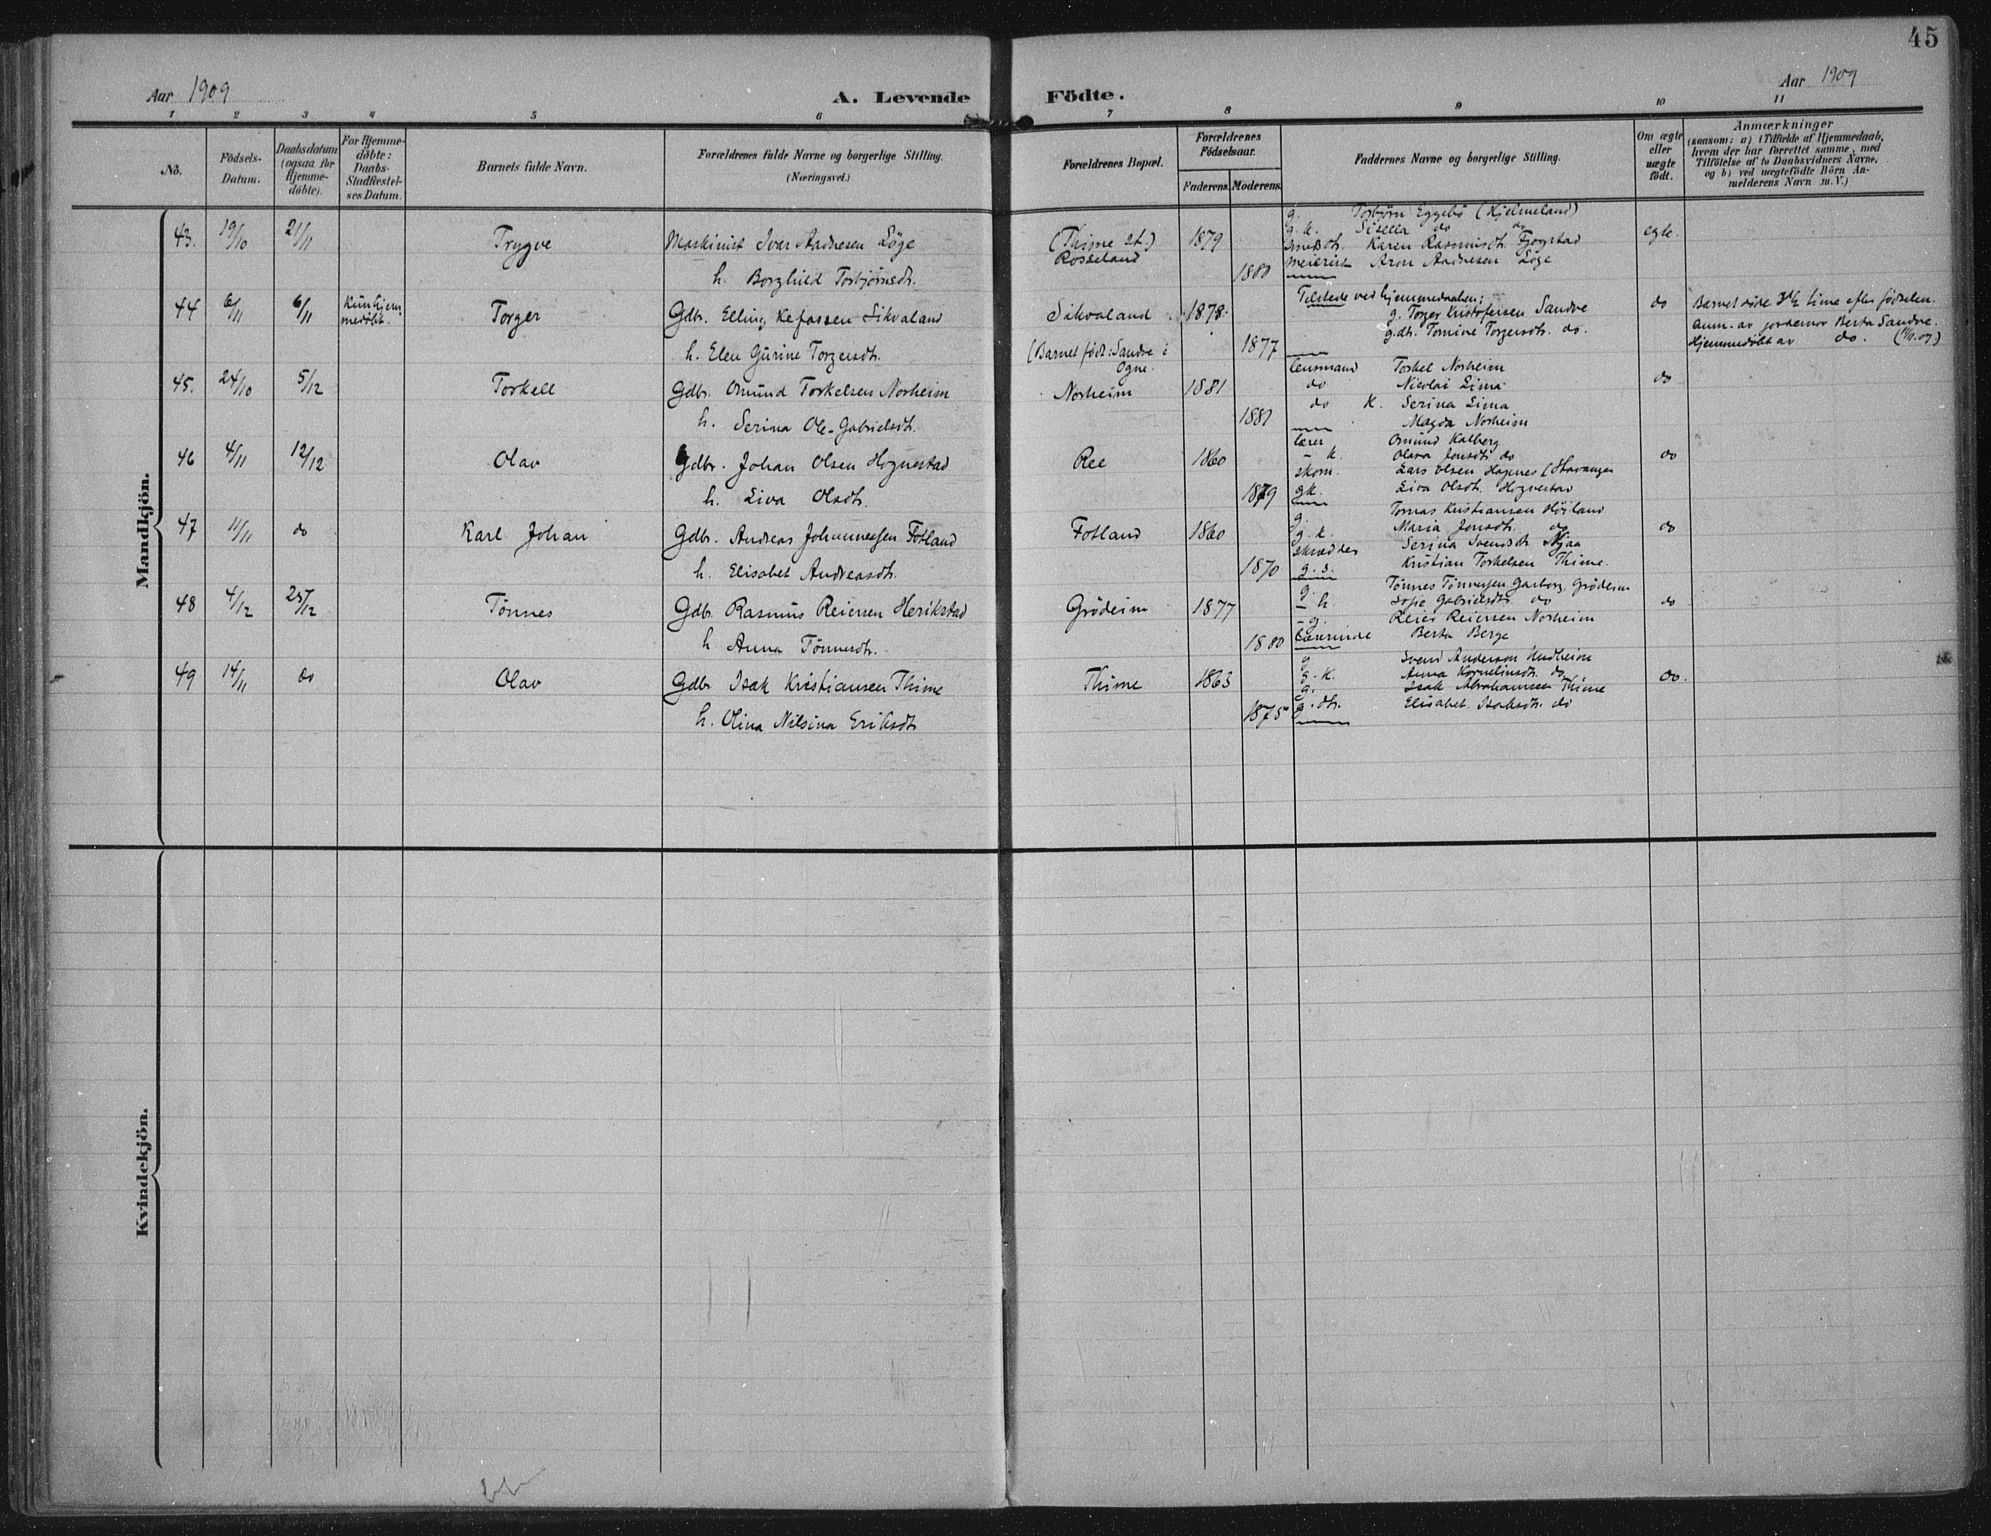 45
Aar 1909
A. Levende Födte.
Aar 1909
1 2 3 4 5 6 7 8 9 10 11
No.
Födsels-Datum.
Daabsdatum (ogsaa for Hjemme-døbte).
For Hjemme-døbte: Daabs-Stadfæstel-ses Datum.
Barnets fulde Navn.
Forældrenes fulde Navne og borgerlige Stilling.
(Næringsvei.)
Forældrenes Bopæl.
Forældrenes Födselsaar.
Faderens. Moderens.
Faddernes Navne og borgerlige Stilling.
Om ægte eller uægte födt.
Anmærkninger
(saasom: a) i Tilfælde af Hjemmedaab,
hvem der har forrettet samme, med
Tilföielse af to Daabsvidners Navne,
og b) ved uægtefödte Börn An-
melderens Navn m. V.)
Mandkjön.
43. 19/10 21/11 Trygve Maskinist Iver Aadnesen Löge (Thime st.) 1879 egte.
h. Borghild Torbjørnsdt. Rosseland 1880
g. Torbjörn Eggebö (Hjelmeland)
g.k. Sisella do do
Karen Rasmusdt. Fjogstad
meierist Aron Aadnesen Löge
44 6/11 6/11 Kun hjem-medøbt. Torger Gdbr. Elling Kefassen Sikvaland Sikvaland 1878 do
h. Elen Gurine Torgersdt. (Barnet født: Sandve i Ogne. 1877
Tilstede ved hjemmedaaben:
g. Torger Kristofersen Sandve
g.dt. Tomine Torgersdt. do.
Barnet døde 3½ time efter fødselen.
Anm. av jordemor Berta Sandve.
Hjemmedøbt av do.
45. 24/10 5/12 Torkell Gdbr. Omund Torkelsen Norheim Norheim 1881 do
h. Serina Ole-Gabrielsdt. 1881
lensmand Torkel Norheim
do Nicolai Lima
do K. Serina Lima
Magda Norheim
46 4/11 12/12 Olav Gdbr. Johan Olsen Hognestad Ree 1860 do
h. Liva Olsdt. 1879
lærer Omund Kalberg
- k. Olava Jonsdt. do
skom. Lars Olsen Hognes (Stavanger
gk. Liva Olsdt. Hognestad
47 11/11 do Karl Johan Gdbr. Andreas Johannessen Fotland Fotland 1860 do
h. Elisabet Andreasdt. 1870
g. Tomas Kristiansen Höiland
g.k. Maria Jonsdt. do
skrædder Serina Svendsdt. Njaa
g.s. Kristian Torkelsen Thime.
48 4/12 25/12 Tönnes Gdbr. Rasmus Reiersen Herikstad Grödeim 1877 do
h. Anna Tönnesdt. 1880
g. Tönnes Tönnessen Garborg, Grödeim
- k. Sofie Gabrielsdt. do
- g. Reier Reiersen Norheim
lærerinde Berta Berge
49 14/11 do Olav Gdbr. Isak Kristiansen Thime Thime 1863 do.
h. Olina Nilsina Eriksdt. 1875
g. Svend Anderson Undheim
g.k. Anna Korneliusdt. do
g. Isak Abrahamsen Thime
g.dt. Elisabet Isaksdt. do
Kvindekjön.